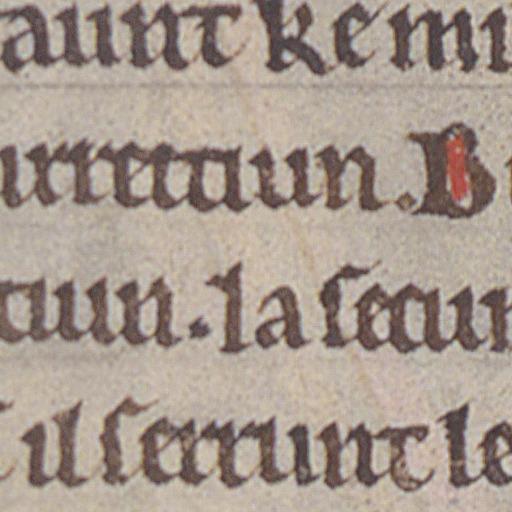 aunt ke mi
urrectiun. B
ciun. la secun
il serrunt le